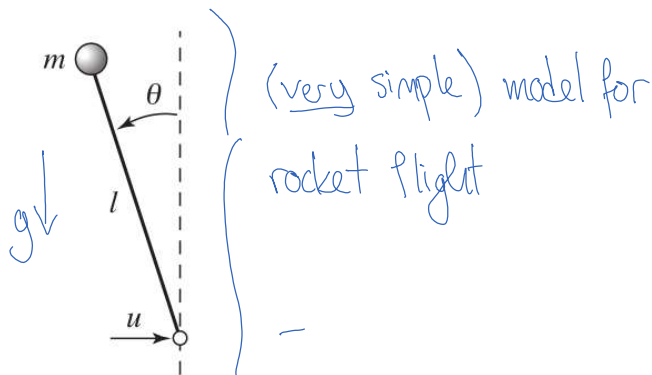 m
θ
(very simple) model for
rocket flight
l
g
u